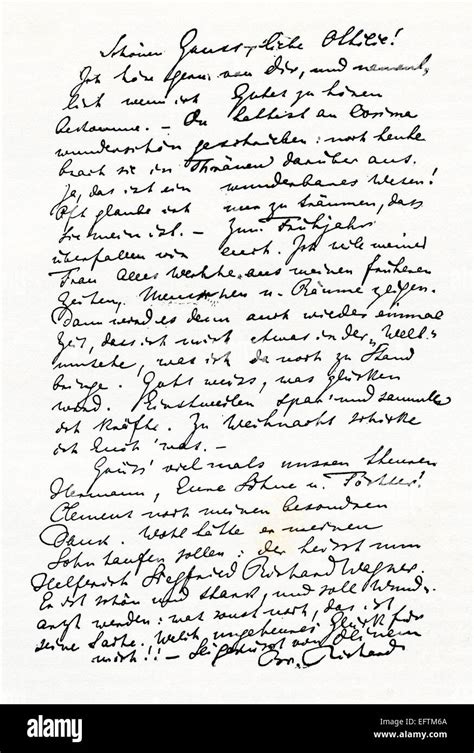 Schönen Gruss, liebe Ottilie!
Ich höre gern von Dir, und nament-
lich wenn ich Gutes zu hören
bekomme. – Du hattest an Cosima
wunderschön geschrieben: noch heute
brach sie in Thränen darüber aus.
Ja, das ist ein wunderbares Wesen!
Oft glaube ich nur zu träumen, dass
sie mein ist. – Zum Frühjahr
überfallen wir euch. Ich will meiner
Frau Alles Werthe aus meinen früheren
Zeiten, Menschen u. Räume zeigen.
Dann wird es denn auch wieder einmal
Zeit, dass ich mich etwas in der „Welt"
umsehe, was ich da noch zu Stand
bringe. Gott weiss, was glücken
wird. Einstweilen spar' und sammle
ich Kräfte. Zu Weihnacht schicke
ich Euch 'was. –
Grüss' viel mals unsren theuren
Hermann, Eure Söhne u. Töchter!
Clemens noch meinen besondren
Dank. Wohl hätte er meinen
Sohn taufen sollen: der heisst nun
Helferich Siegfried Richard Wagner.
Er ist schön und stark, und soll Wund-
arzt werden: was sonst noch, das ist
seine Sache. Welch ungeheures Glück für
mich!! – Sei gegrüsst von Deinem
Br. Richard
alamy
EFTM6A